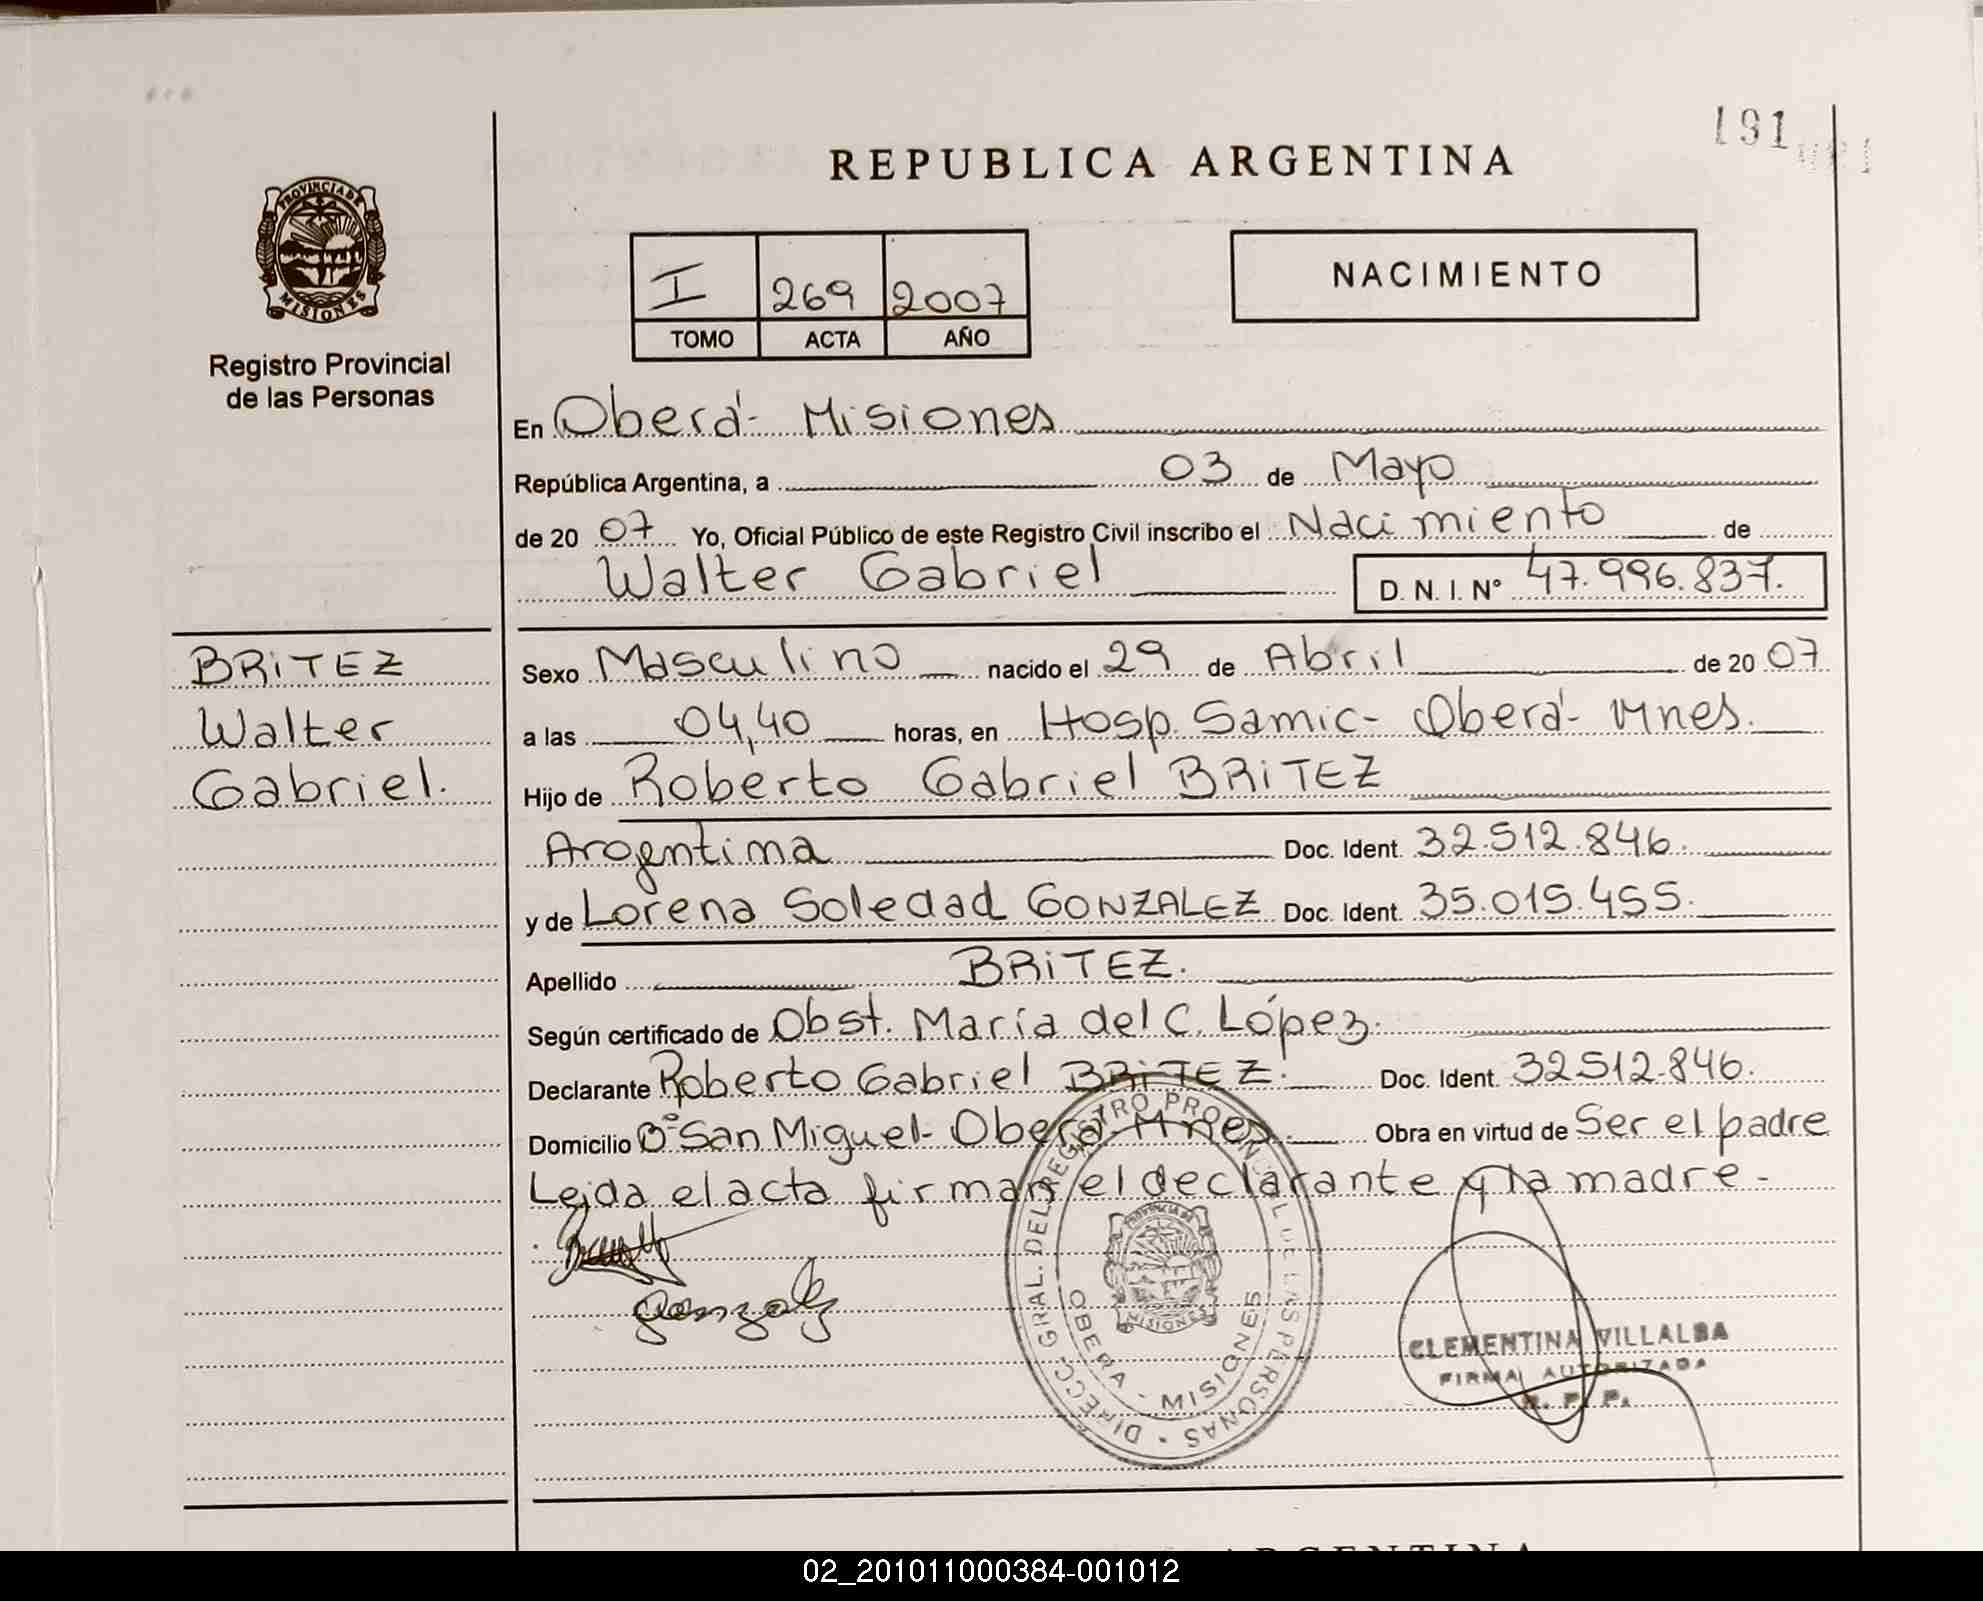 191
REPUBLICA ARGENTINA
PROVINCIA DE
MISIONES
Registro Provincial
de las Personas
I 269 2007
TOMO ACTA AÑO
NACIMIENTO
En Oberá- Misiones
República Argentina, a 03 de Mayo
de 20 07 Yo, Oficial Público de este Registro Civil inscribo el Nacimiento de
Walter Gabriel D. N. I. Nº 47.996.837.
BRITEZ
Walter
Gabriel.
Sexo Masculino nacido el 29 de Abril de 20 07
a las 04,40 horas, en Hosp. Samic- Oberá- Mnes.
Hijo de Roberto Gabriel BRITEZ
Argentina Doc. Ident. 32.512.846.
y de Lorena Soledad GONZALEZ Doc. Ident. 35.015.455.
Apellido BRITEZ.
Según certificado de Obst. María del C. López.
Declarante Roberto Gabriel BRITEZ. Doc. Ident. 32512.846.
Domicilio Bº San Miguel- Oberá- Mnes. Obra en virtud de Ser el padre
Leida el acta firman el declarante y la madre-
Gonzalez
DIRECC. GRAL. DEL REGISTRO PROVINCIAL DE LAS PERSONAS
OBERA - MISIONES
CLEMENTINA VILLALBA
FIRMA AUTORIZADA
R. P. P.
02_201011000384-001012